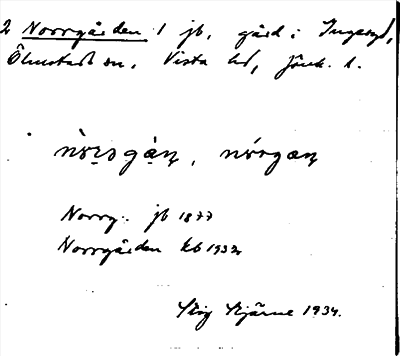 2 Norrgården 1 jb, gård i Ingaryd,
Ölmstad sn, Vista hd, Jönk. l.
nòrəgạ̀ṇ, nórgaṇ
Norrg.. jb 1877
Norrgården kb 1932
Stig Bjärne 1934.